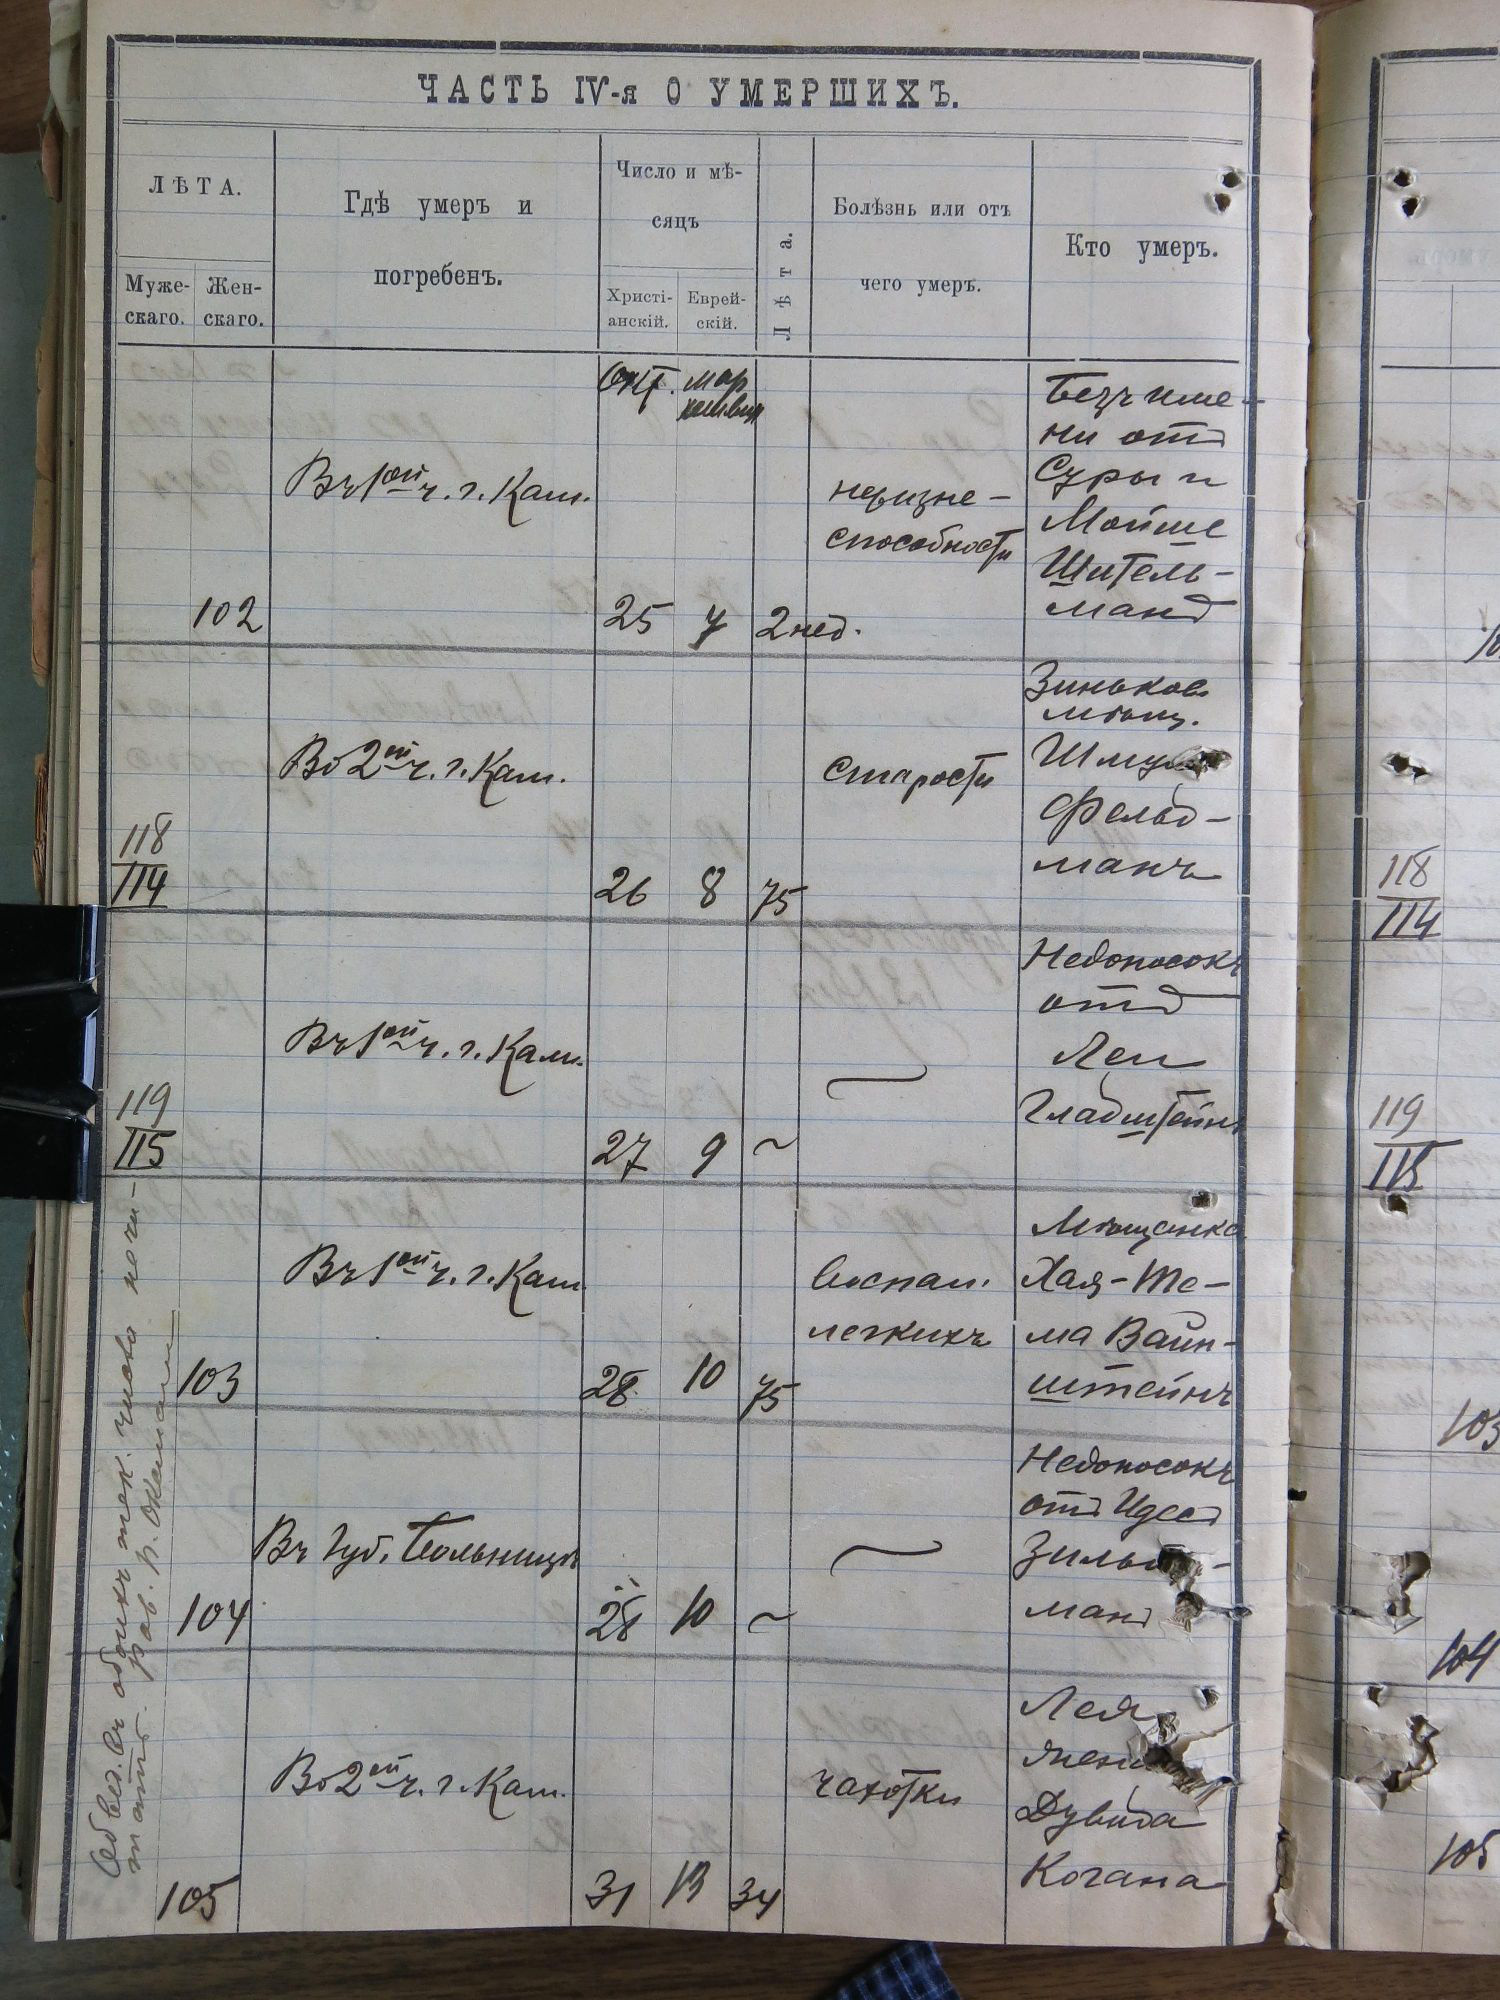 ЧАСТЬ IV-я О УМЕРШИХЪ.
ЛѢТА.
Муже-
скаго.
Жен-
скаго.
Гдѣ умеръ и
погребенъ.
Число и мѣ-
сяцъ
Христі-
анскій.
Еврей-
скій.
Лѣта.
Болѣзнь или отъ
чего умеръ.
Кто умеръ.
Окт.
мар
хешвон
102
Въ 1ой ч. г. Кам.
25
7
2 нед.
нежизне-
способности
Безъ име-
ни отъ
Суры и
Мойше
Шитель-
манъ
118
114
Во 2ой ч. г. Кам.
26
8
75
старости
Зиньков.
мѣщ.
Фельд-
манъ
119
115
Въ 1ой ч. г. Кам.
27
9
~
Недоносокъ
отъ
Леи
Гладштейнъ
103
Въ 1ой ч. г. Кам.
28
10
75
воспал.
легкихъ
Мѣщанка
Хая-Те-
ма Вайн-
штейнъ
104
Въ Губ. Больницѣ
28
10
~
Недоносокъ
отъ Идеса
манъ
105
Во 2ой ч. г. Кам.
31
13
34
чахотки
Лея
Дувида
Когана
118
114
119
115
103
104
105